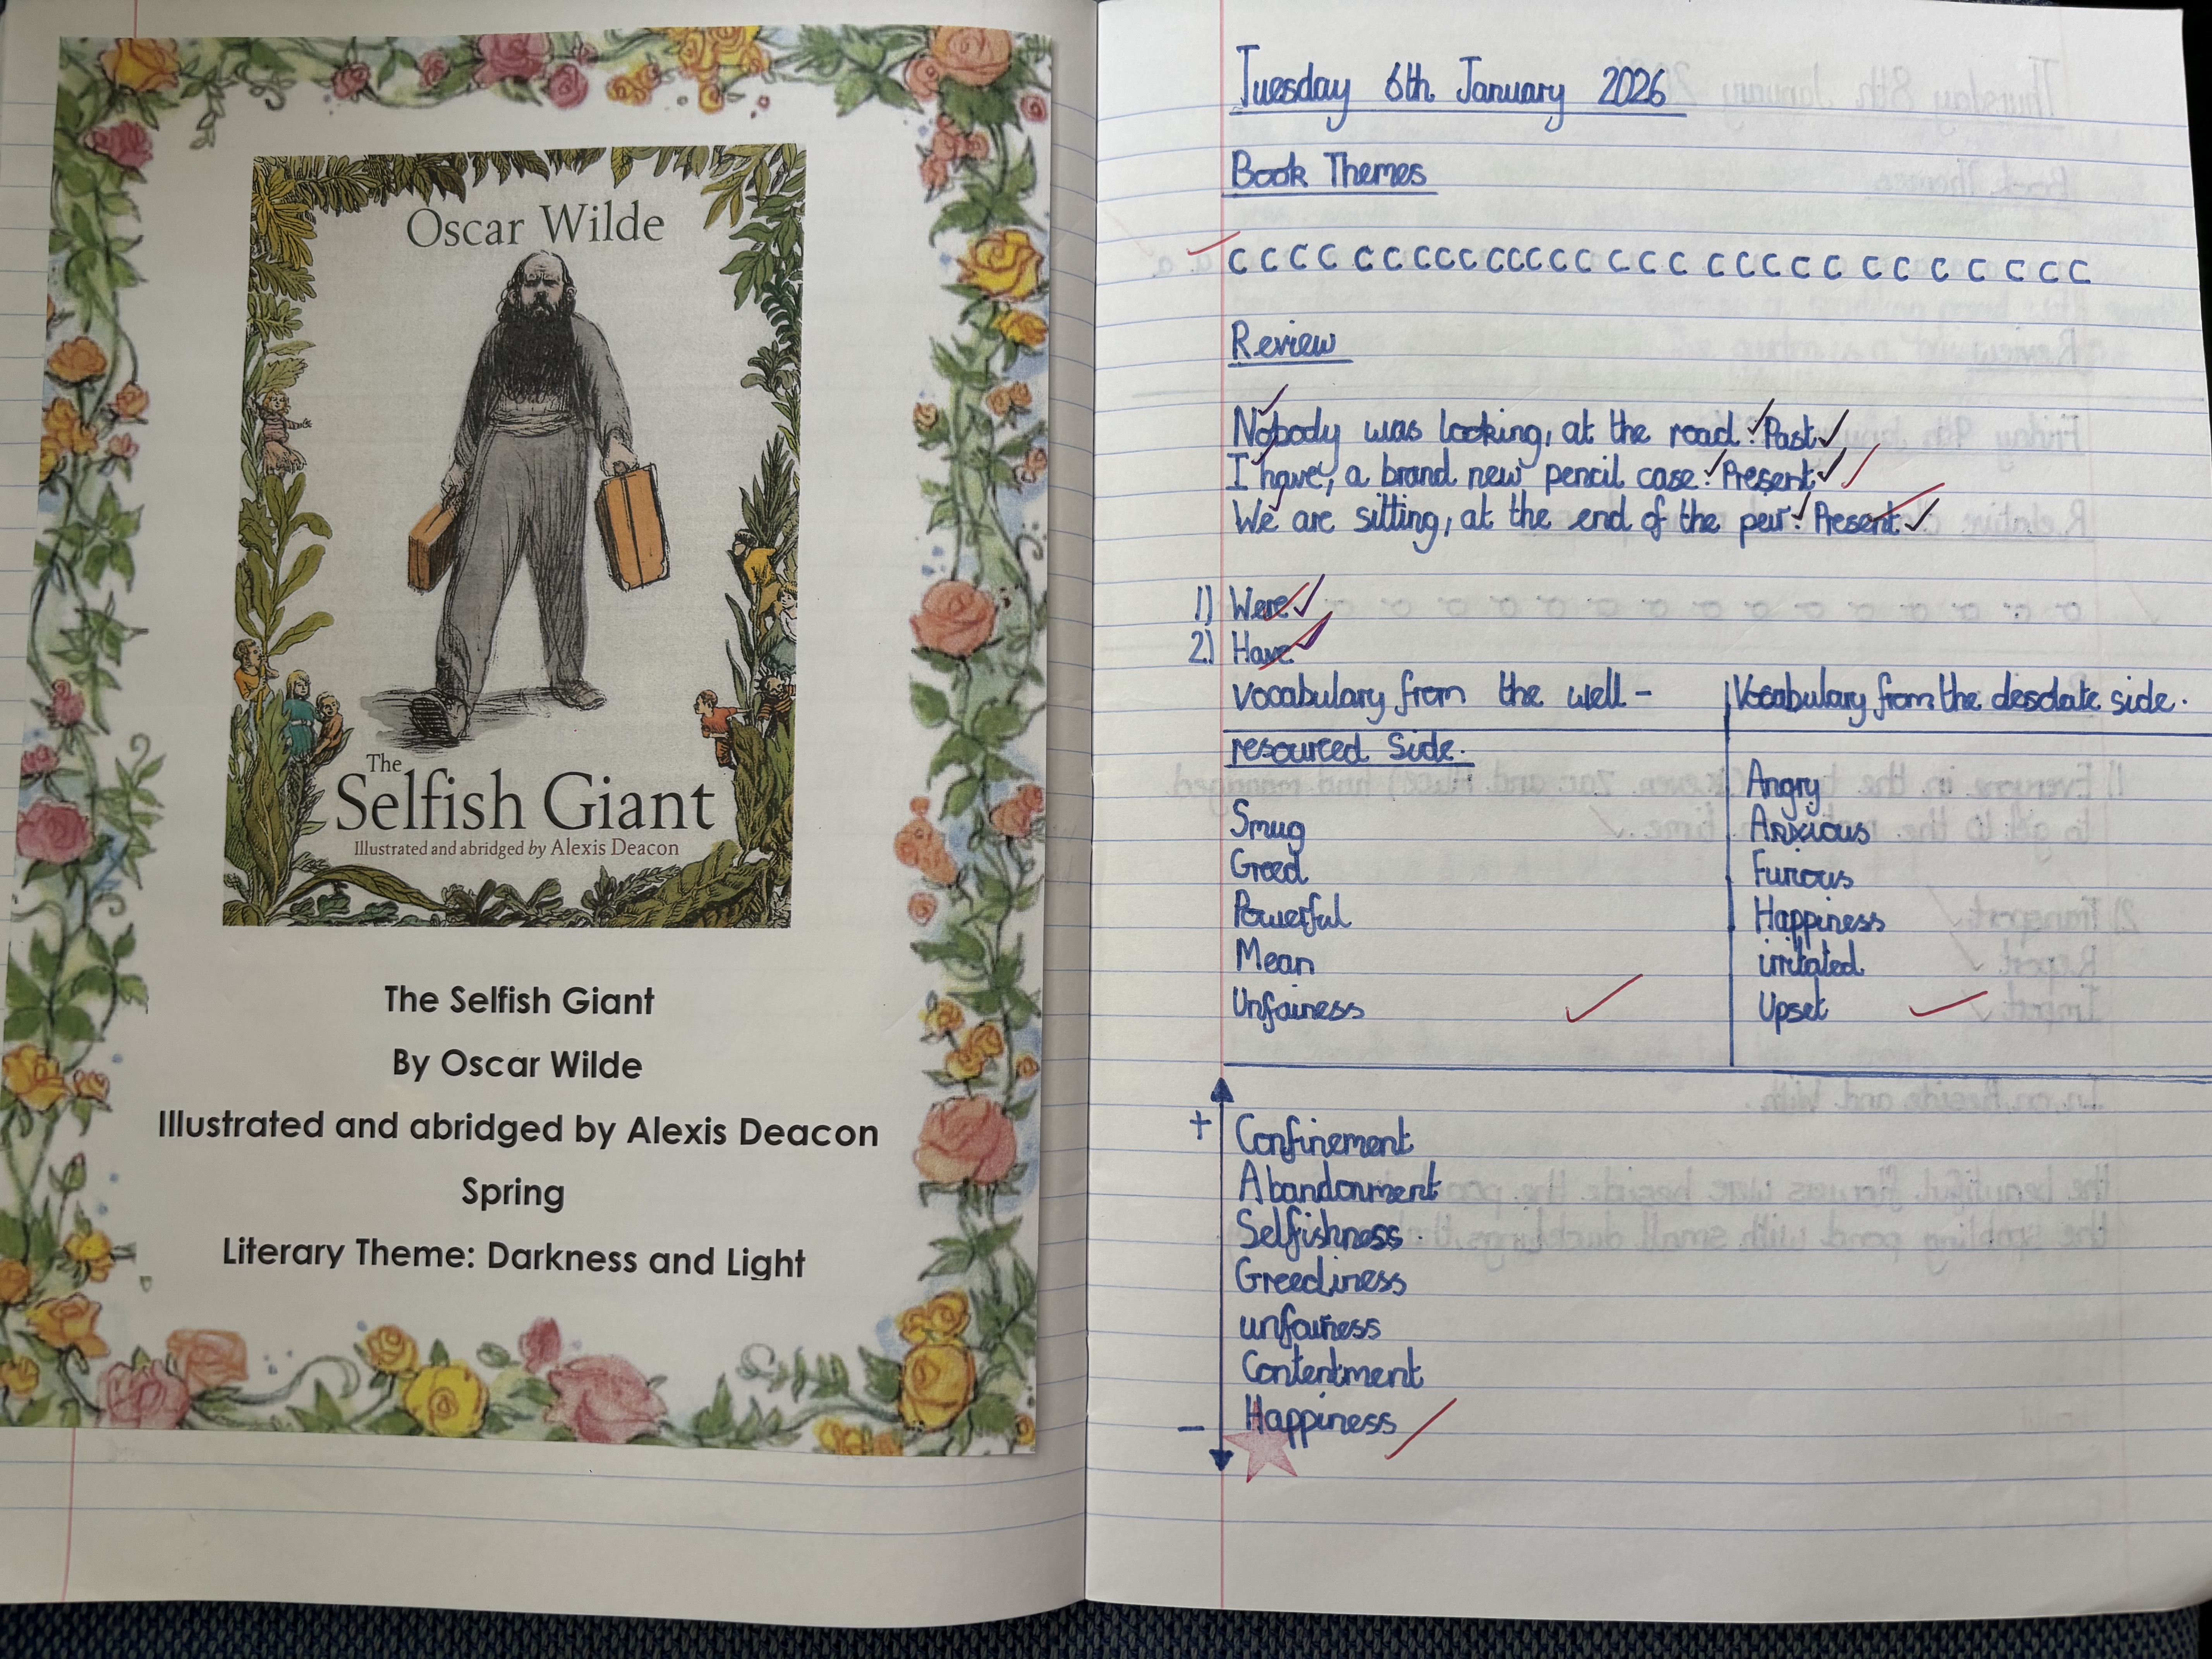 Oscar Wilde
The
Selfish Giant
Illustrated and abridged by Alexis Deacon
The Selfish Giant
By Oscar Wilde
Illustrated and abridged by Alexis Deacon
Spring
Literary Theme: Darkness and Light
Tuesday 6th January 2026
Book Themes
c c c c c c c c c c c c c c c c c c c c c c c c c c c c c c
Review
Nobody was looking, at the road. Past
I have, a brand new pencil case. Present
We are sitting, at the end of the peir. Present
1) Were
2) Have
Vocabulary from the well -
resourced Side.
Smug
Greed
Powerful
Mean
Unfairness
Vocabulary from the desolate side.
Angry
Anxious
Furious
Happiness
irritated
Upset
+
Confinement
Abandonment
Selfishness
Greediness
unfairness
Contentment
Happiness
-